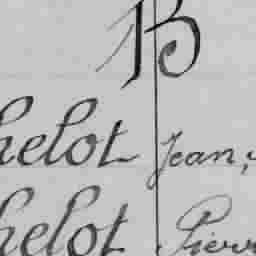 B
helot Jean,
helot Pierr